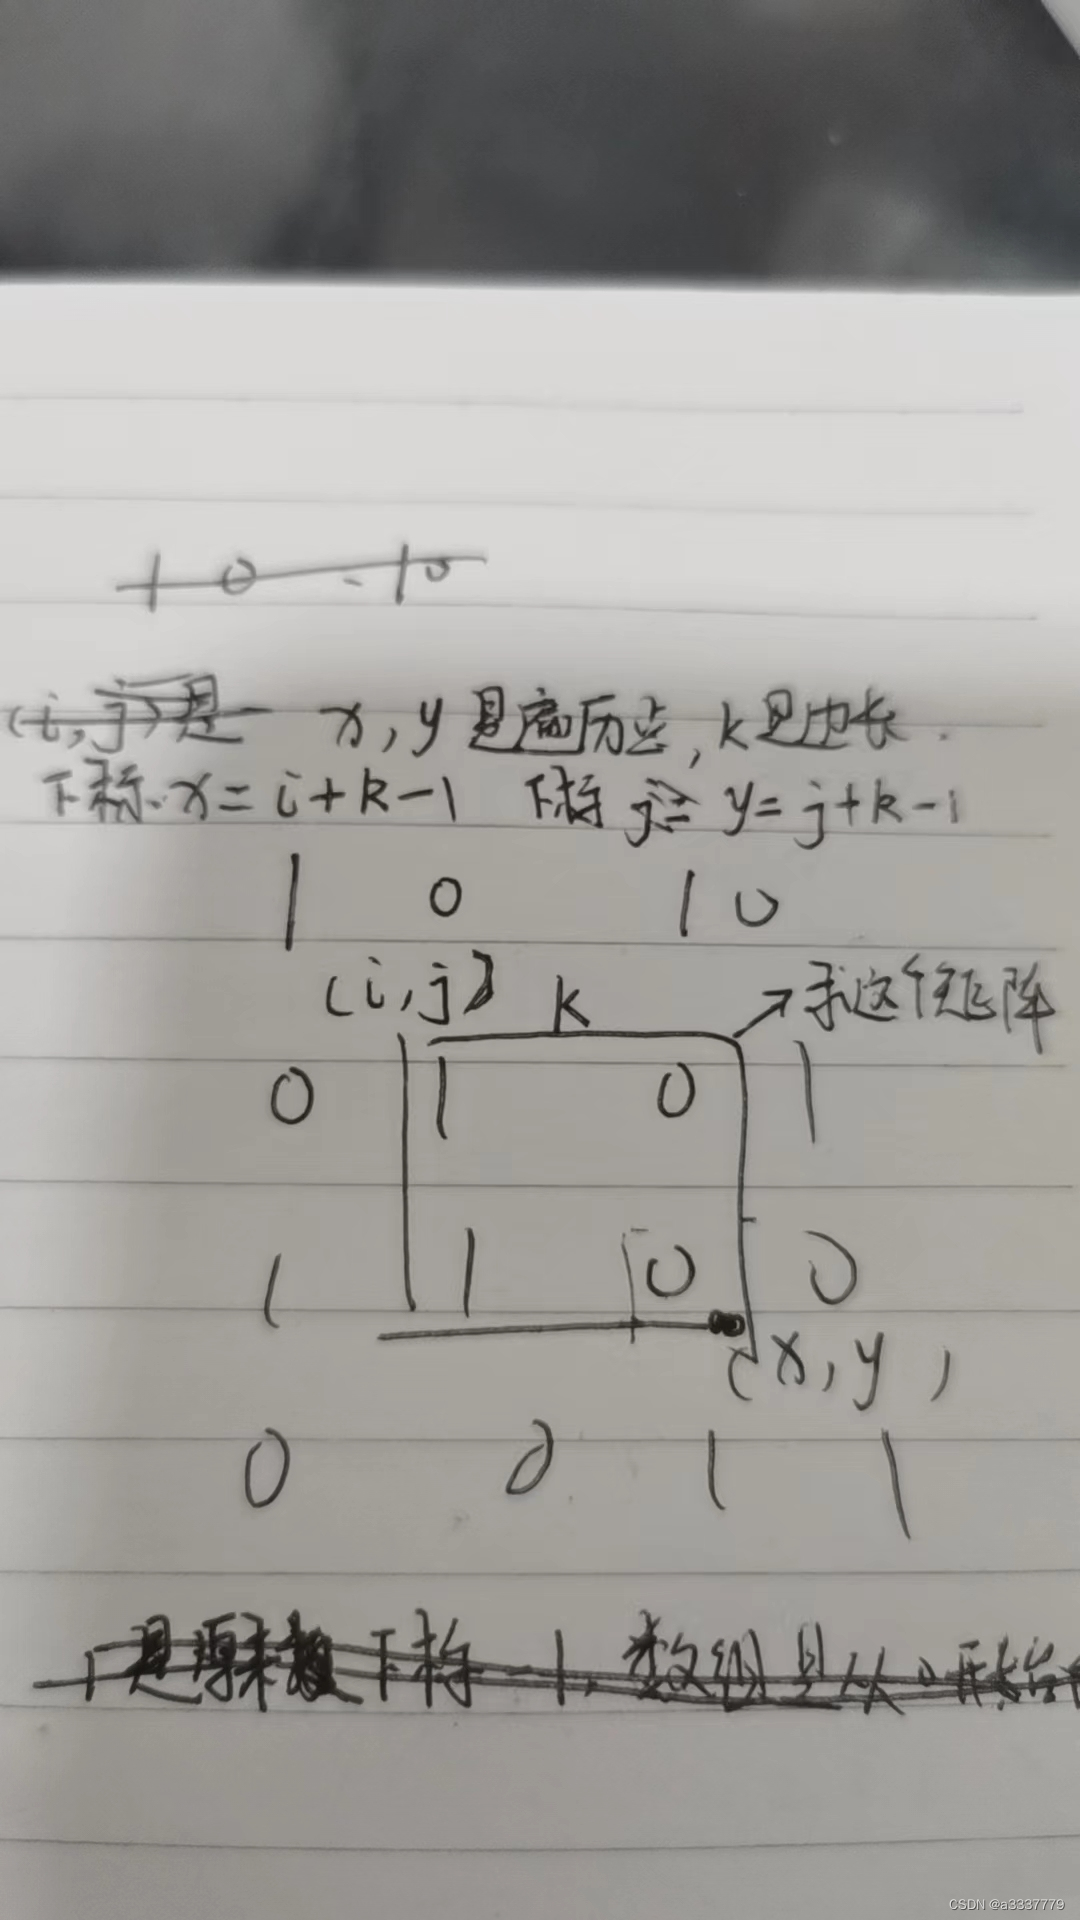 1 0 10
(i,j)是 x,y是遍历点,k是边长.
下标.x=i+k-1 下标 j= y=j+k-1
1 0 1 0
(i,j) k →求这个矩阵
0 1 0 1
1 1 0 0
(x,y)
0 0 1 1
1是原来数下标-1,数组是从0开始
CSDN @a3337779